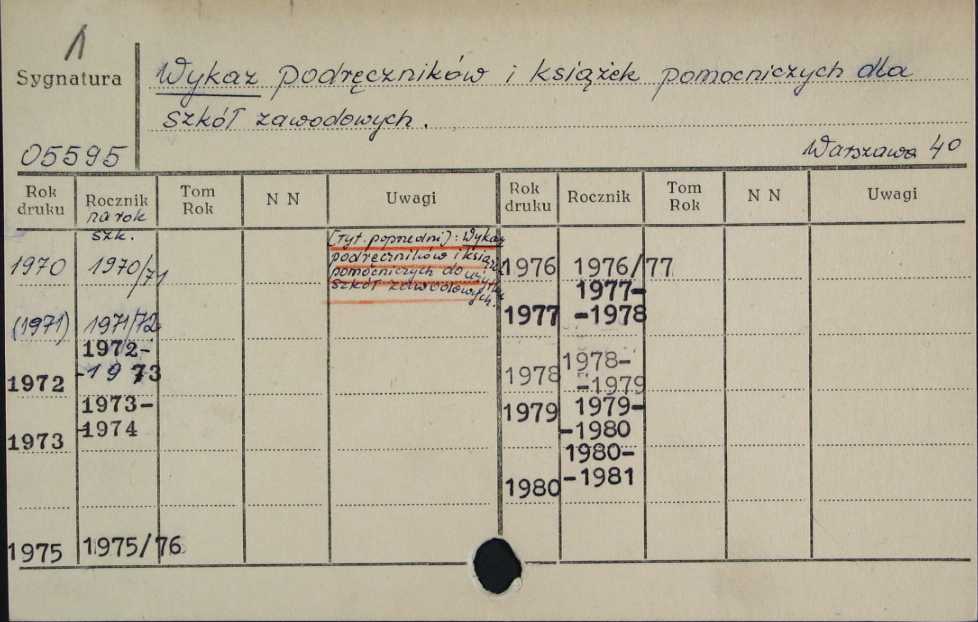 1
Sygnatura
Wykaz podręczników i książek pomocniczych dla
szkół zawodowych.
05595
Warszawa 4°
Rok druku Rocznik Tom Rok N N Uwagi Rok druku Rocznik Tom Rok N N Uwagi
na rok
szk.
1970 1970/71
(1971) 1971/72
1972 1972-
-1973
1973 1973-
-1974
1975 1975/76
[Tyt. poprzedni]: Wykaz
podręczników i książek
pomocniczych do użytku
szkół zawodowych.
1976 1976/77
1977 1977-
-1978
1978 1978-
-1979
1979 1979-
-1980
1980 1980-
-1981